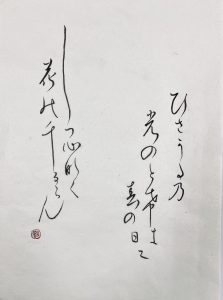 ひさ可た乃
光のと希き
春の日に
しつ心那く
花能千るらん